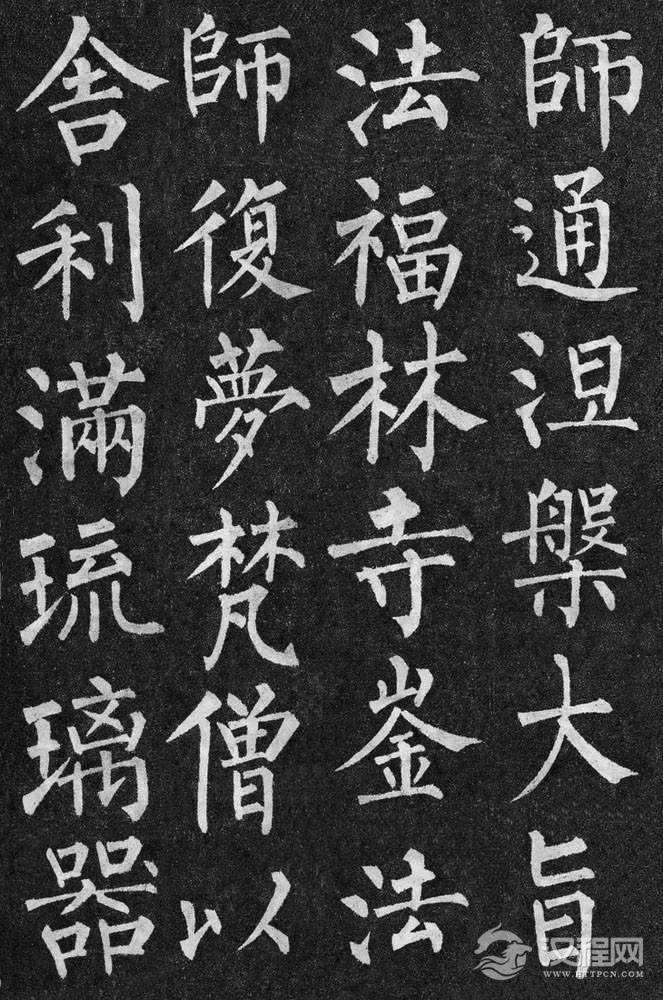 師通涅槃大旨
法福林寺崟法
師復夢梵僧以
舍利滿琉璃器
汉程网
WWW.HTTPCN.COM